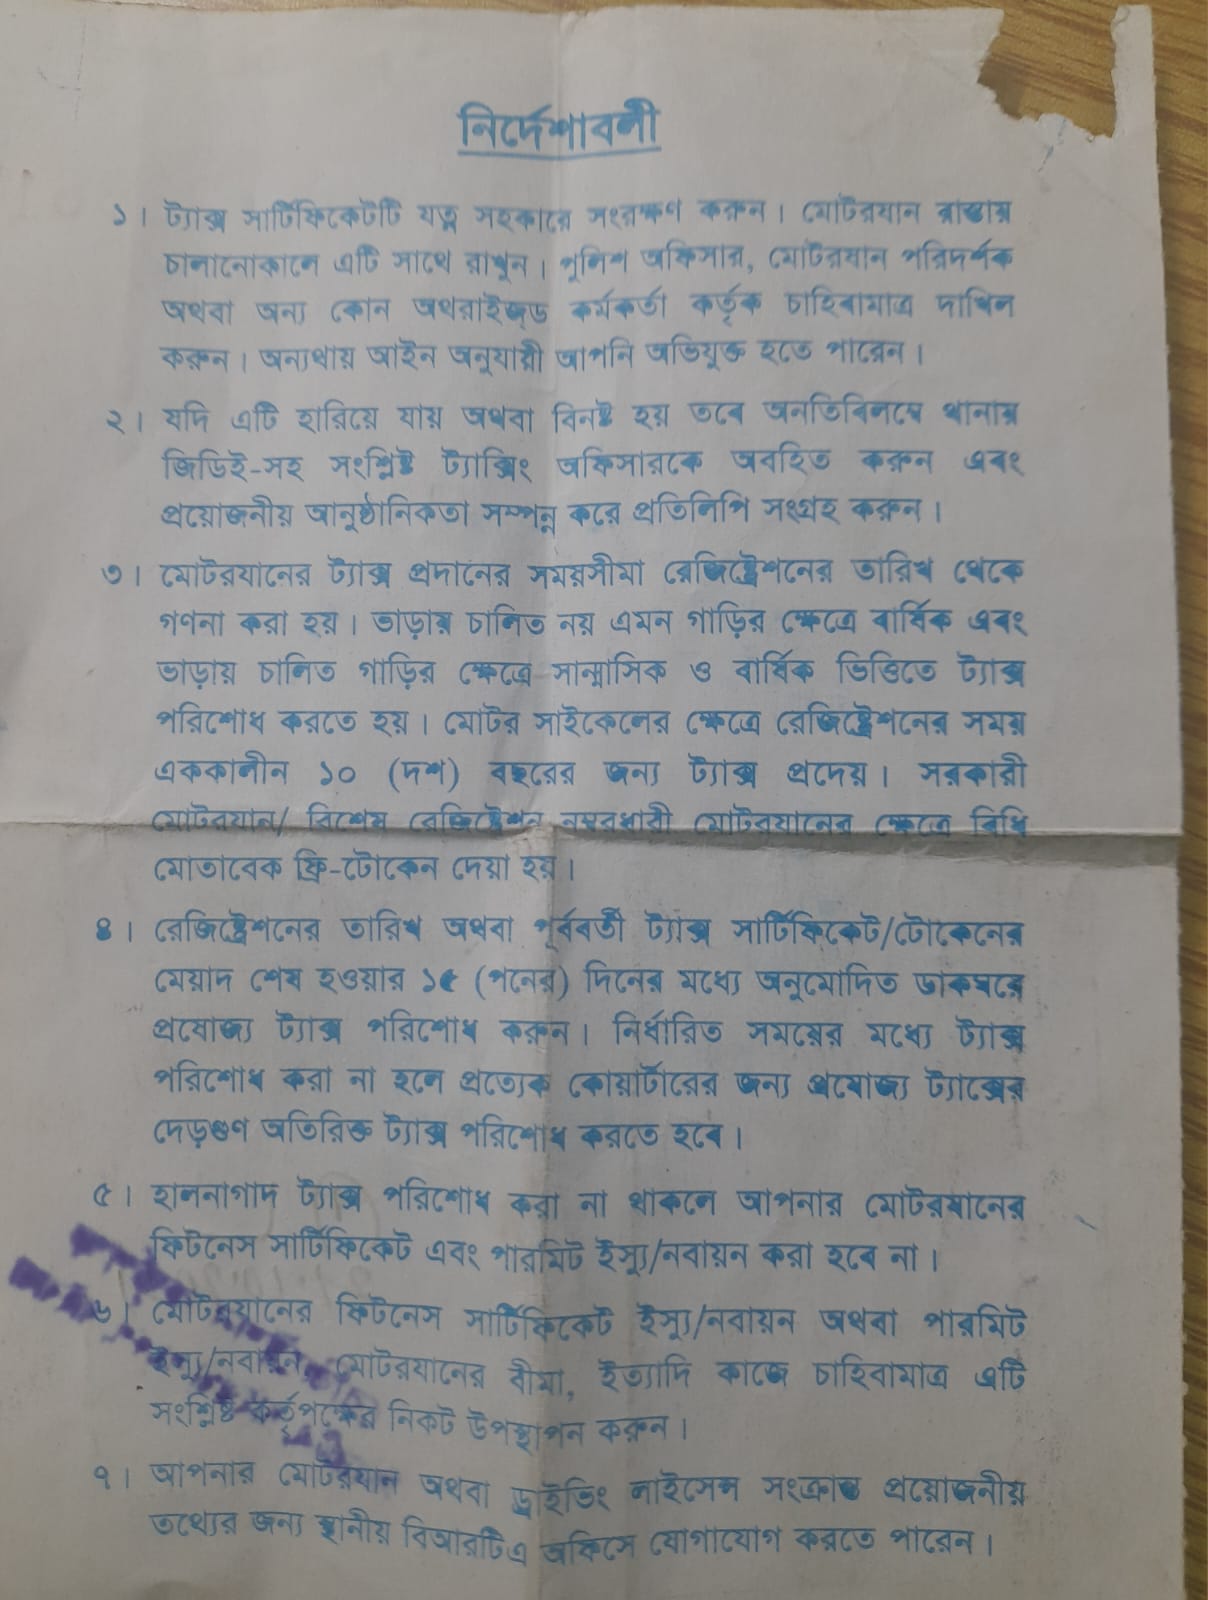 নির্দেশাবলী
১। ট্যাক্স সার্টিফিকেটটি যত্ন সহকারে সংরক্ষণ করুন। মোটরযান রাস্তায়
চালানোকালে এটি সাথে রাখুন। পুলিশ অফিসার, মোটরযান পরিদর্শক
অথবা অন্য কোন অথরাইজ্ড কর্মকর্তা কর্তৃক চাহিবামাত্র দাখিল
করুন। অন্যথায় আইন অনুযায়ী আপনি অভিযুক্ত হতে পারেন।
২। যদি এটি হারিয়ে যায় অথবা বিনষ্ট হয় তবে অনতিবিলম্বে থানায়
জিডিই-সহ সংশ্লিষ্ট ট্যাক্সিং অফিসারকে অবহিত করুন এবং
প্রয়োজনীয় আনুষ্ঠানিকতা সম্পন্ন করে প্রতিলিপি সংগ্রহ করুন।
৩। মোটরযানের ট্যাক্স প্রদানের সময়সীমা রেজিষ্ট্রেশনের তারিখ থেকে
গণনা করা হয়। ভাড়ায় চালিত নয় এমন গাড়ির ক্ষেত্রে বার্ষিক এবং
ভাড়ায় চালিত গাড়ির ক্ষেত্রে সান্মাসিক ও বার্ষিক ভিত্তিতে ট্যাক্স
পরিশোধ করতে হয়। মোটর সাইকেলের ক্ষেত্রে রেজিষ্ট্রেশনের সময়
এককালীন ১০ (দশ) বছরের জন্য ট্যাক্স প্রদেয়। সরকারী
মোটরযান/ বিশেষ রেজিষ্ট্রেশন নম্বরধারী মোটরযানের ক্ষেত্রে বিধি
মোতাবেক ফ্রি-টোকেন দেয়া হয়।
৪। রেজিষ্ট্রেশনের তারিখ অথবা পূর্ববর্তী ট্যাক্স সার্টিফিকেট/টোকেনের
মেয়াদ শেষ হওয়ার ১৫ (পনের) দিনের মধ্যে অনুমোদিত ডাকঘরে
প্রযোজ্য ট্যাক্স পরিশোধ করুন। নির্ধারিত সময়ের মধ্যে ট্যাক্স
পরিশোধ করা না হলে প্রত্যেক কোয়ার্টারের জন্য প্রযোজ্য ট্যাক্সের
দেড়গুণ অতিরিক্ত ট্যাক্স পরিশোধ করতে হবে।
৫। হালনাগাদ ট্যাক্স পরিশোধ করা না থাকলে আপনার মোটরযানের
ফিটনেস সার্টিফিকেট এবং পারমিট ইস্যু/নবায়ন করা হবে না।
৬। মোটরযানের ফিটনেস সার্টিফিকেট ইস্যু/নবায়ন অথবা পারমিট
ইস্যু/নবায়ন, মোটরযানের বীমা, ইত্যাদি কাজে চাহিবামাত্র এটি
সংশ্লিষ্ট কর্তৃপক্ষের নিকট উপস্থাপন করুন।
৭। আপনার মোটরযান অথবা ড্রাইভিং লাইসেন্স সংক্রান্ত প্রয়োজনীয়
তথ্যের জন্য স্থানীয় বিআরটিএ অফিসে যোগাযোগ করতে পারেন।